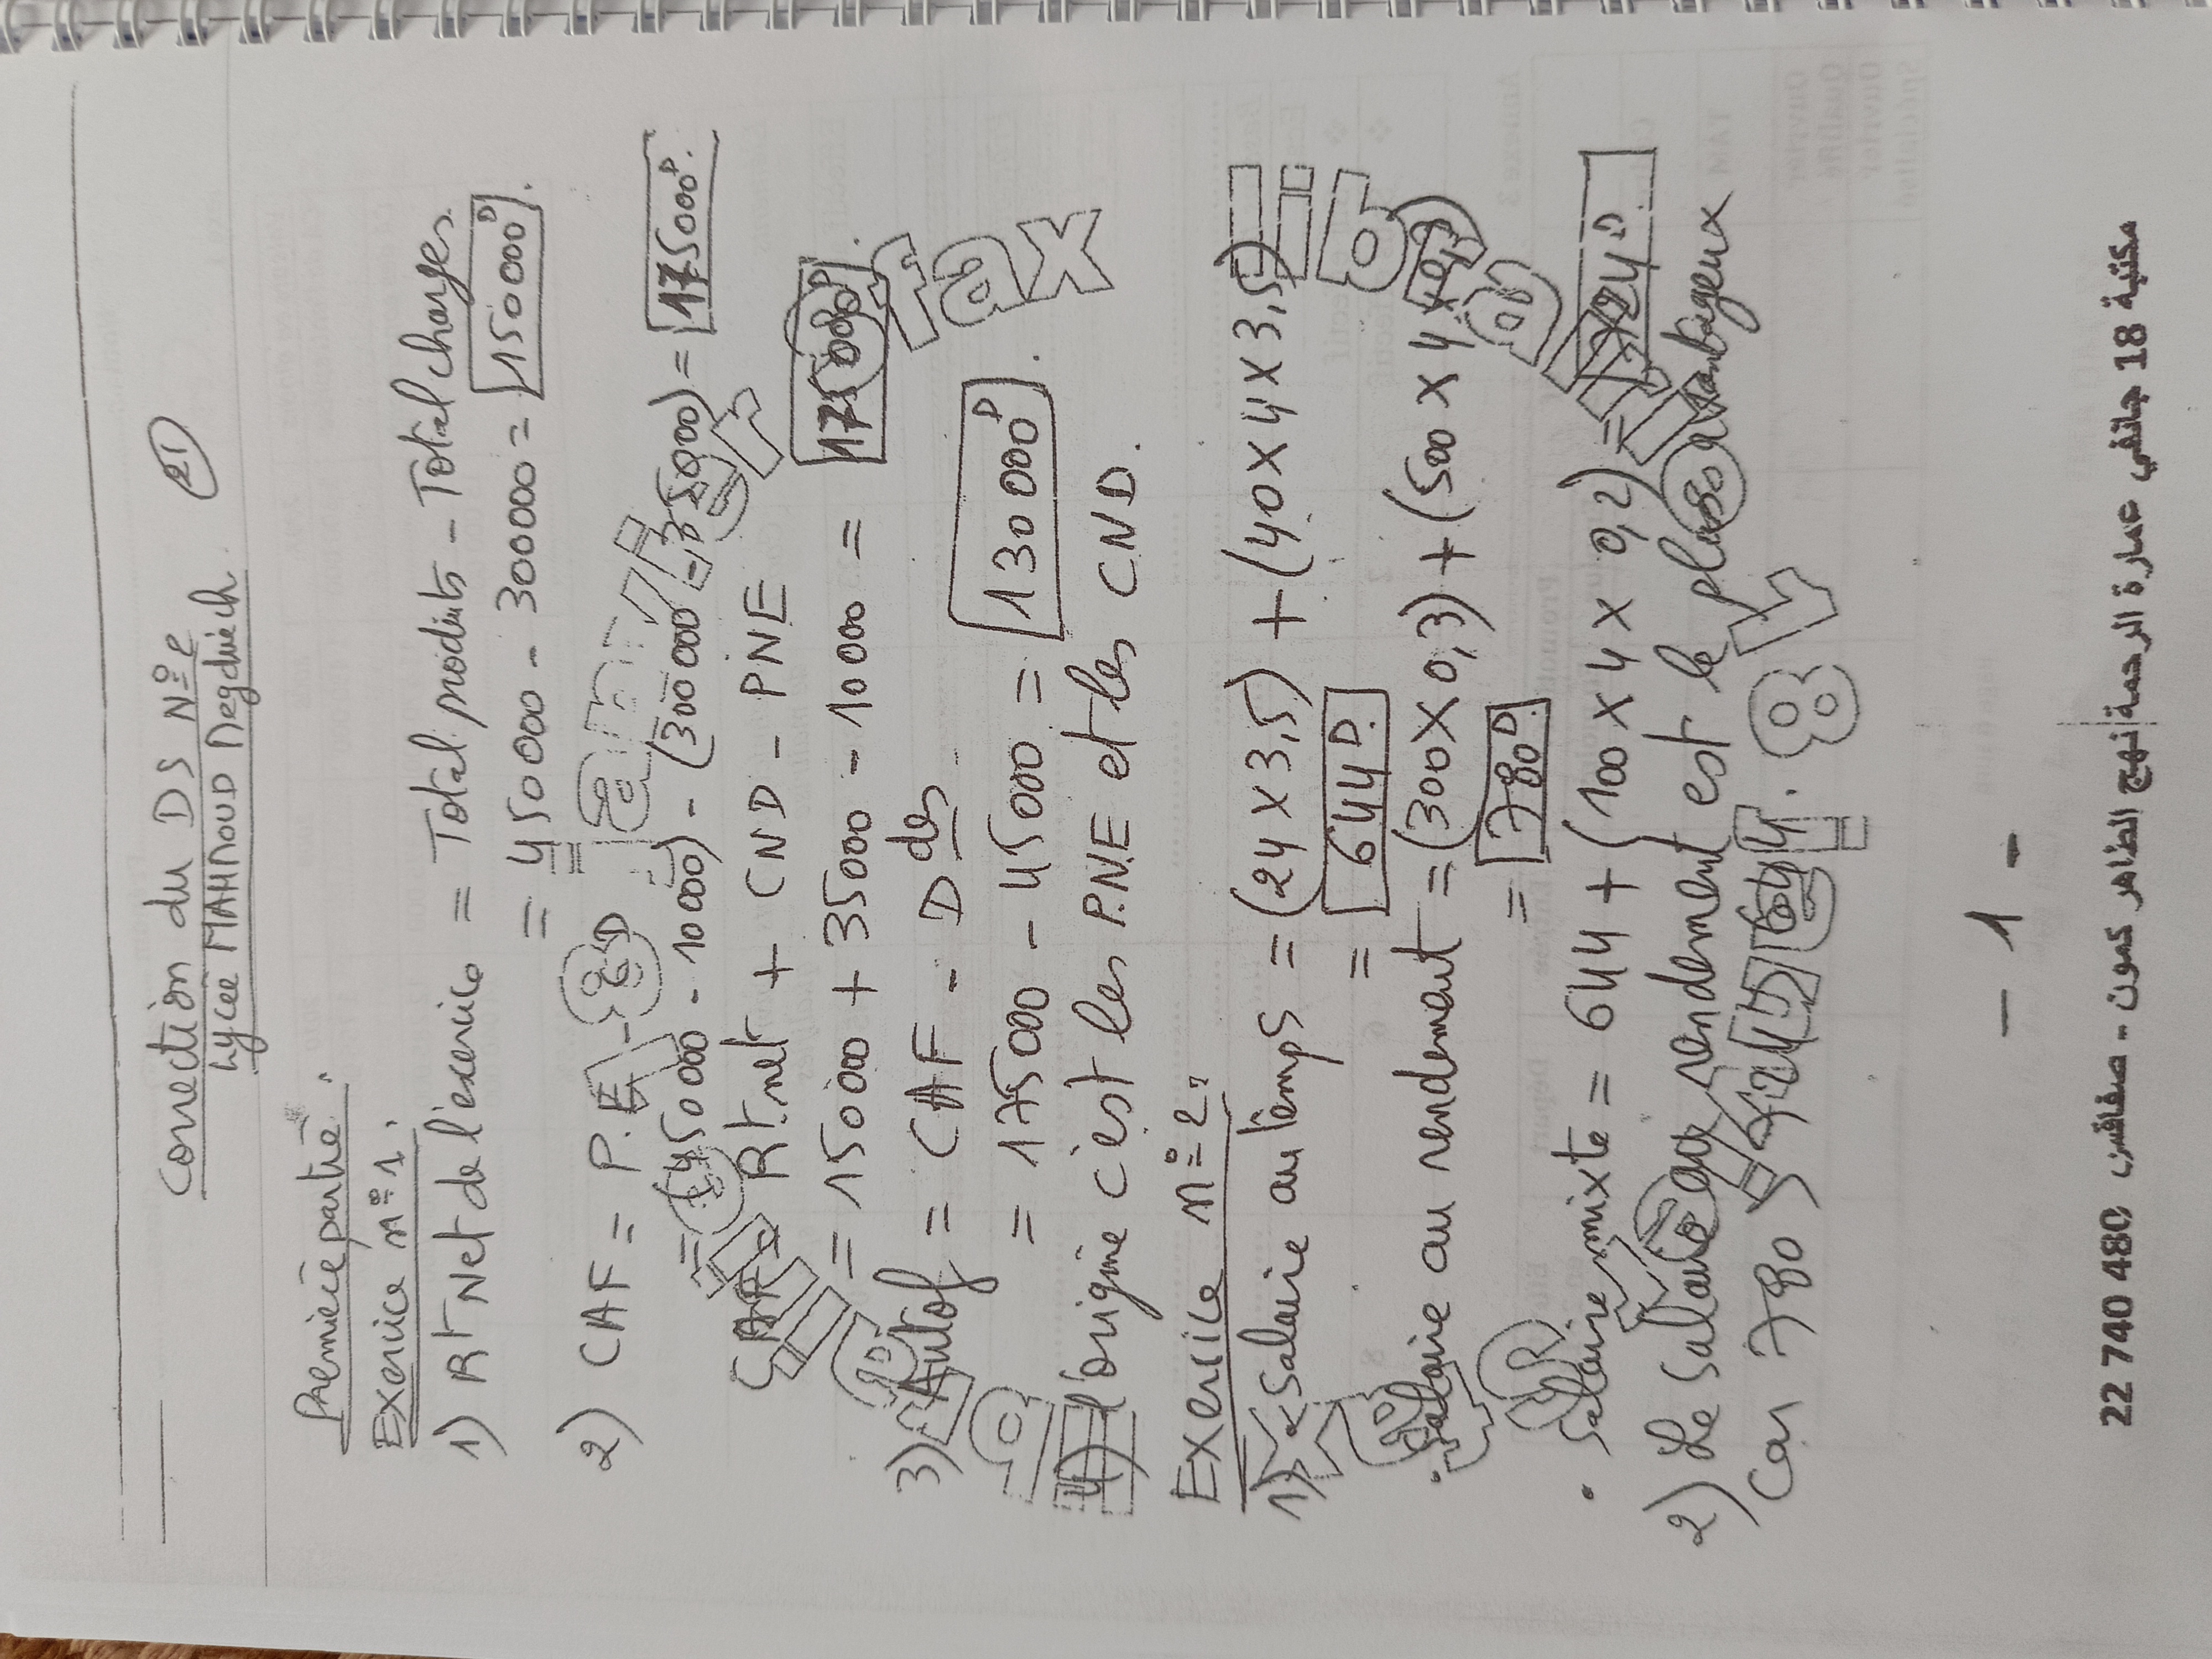 Correction du DS N°2
Lycée MAHMOUD Megdiich.
21
Première partie.
Exercice n°1.
1) Rt Net de l'exercice = Total produits - Total charges.
= 450000 - 300000 = 150000D.
2) CAF = P.E - C.D
= (450000 - 10000) - (300000 - 35000) = 175000D.
CAF = Rt.net + CND - PNE
= 150000 + 35000 - 10000 = 175000D.
3) Autof = CAF - D des
= 175000 - 45000 = 130000D.
4) l'origine c'est les P.N.E et les CND.
Exercice n°2:
1) Salaire au temps = (24 x 3,5) + (40 x 4 x 3,5)
= 644D.
• Salaire au rendement = (300 x 0,3) + (500 x 4 x
= 780D
• Salaire mixte = 644 + (100 x 4 x 0,2) = 724D
2) Le salaire au rendement est le plus avantageux
Car 780 > 724 > 644.
- 1 -
مكتبة 18 جانفي عمارة الرحمة نهج الطاهر كمون - صفاقس 22 740 480